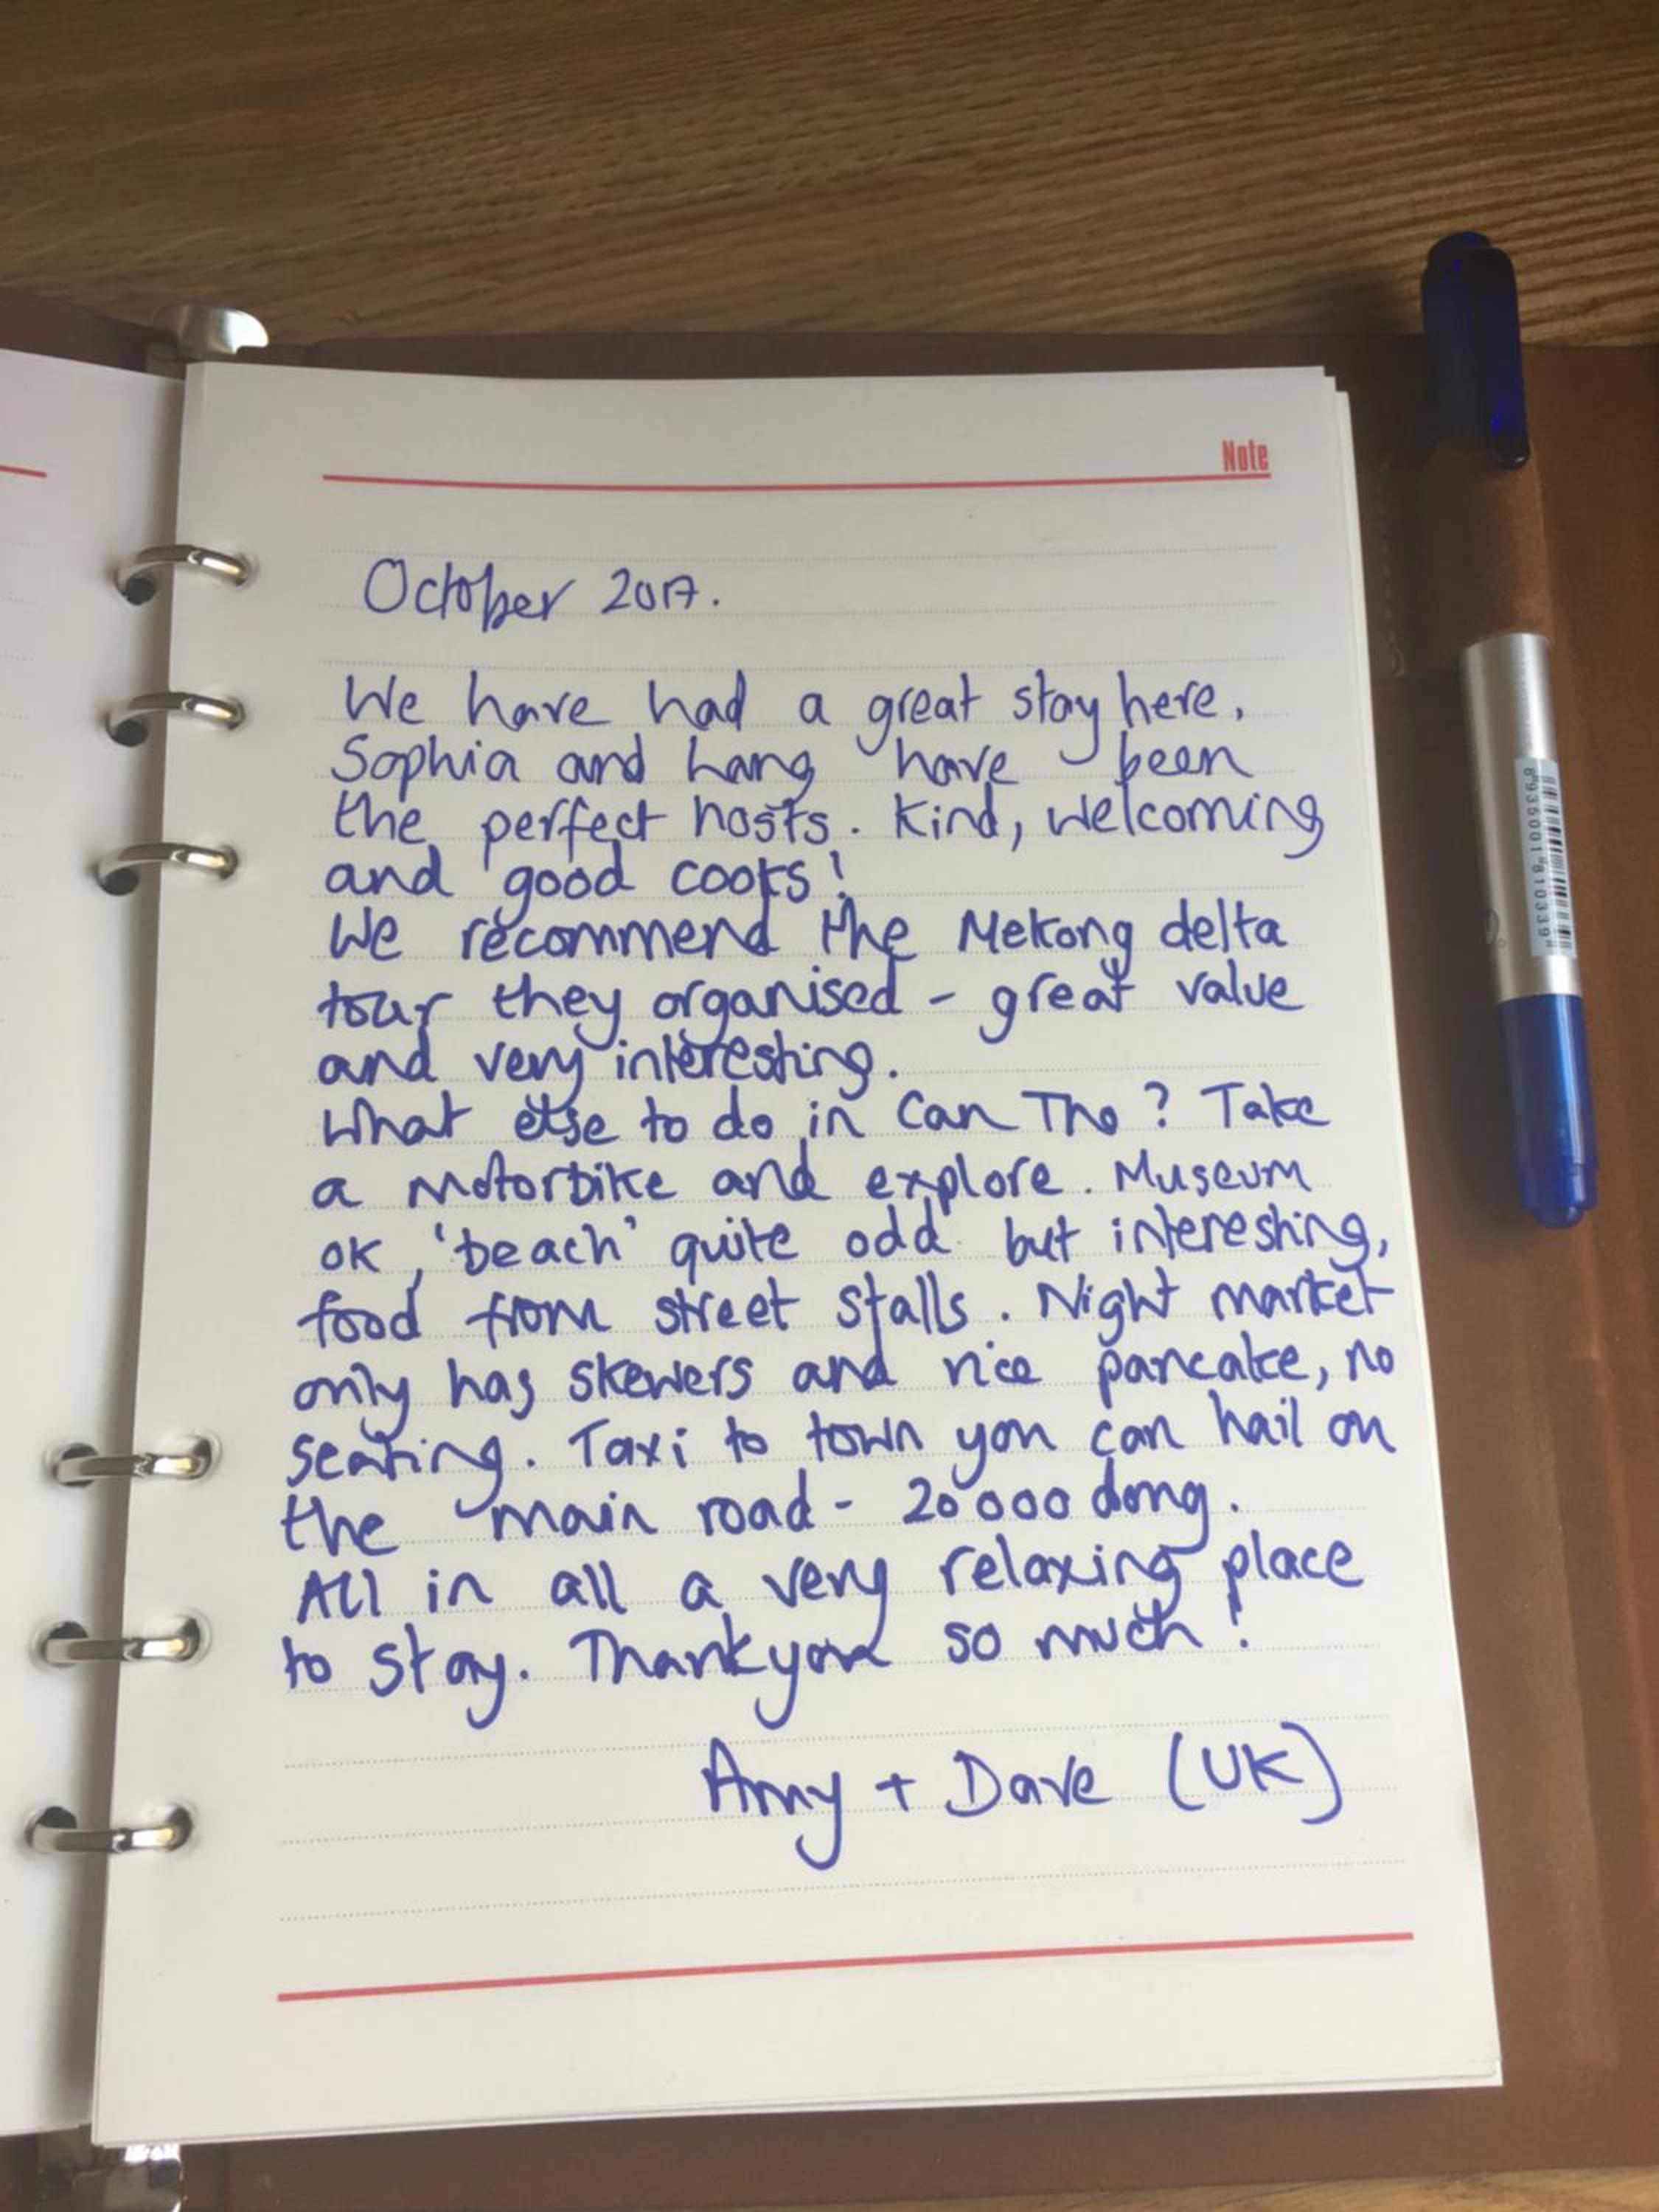 Note
October 2017.
We have had a great stay here.
Sophia and Hang have been
the perfect hosts. Kind, welcoming
and good cooks!
We recommend the Mekong delta
tour they organised - great value
and very interesting.
What else to do in Can Tho? Take
a motorbike and explore. Museum
ok, 'beach' quite odd but interesting,
food from street stalls. Night market
only has skewers and rice pancake, no
seating. Taxi to town you can hail on
the main road - 20 000 dong.
All in all a very relaxing place
to stay. Thankyou so much!
Amy + Dave (UK)
8935001810339